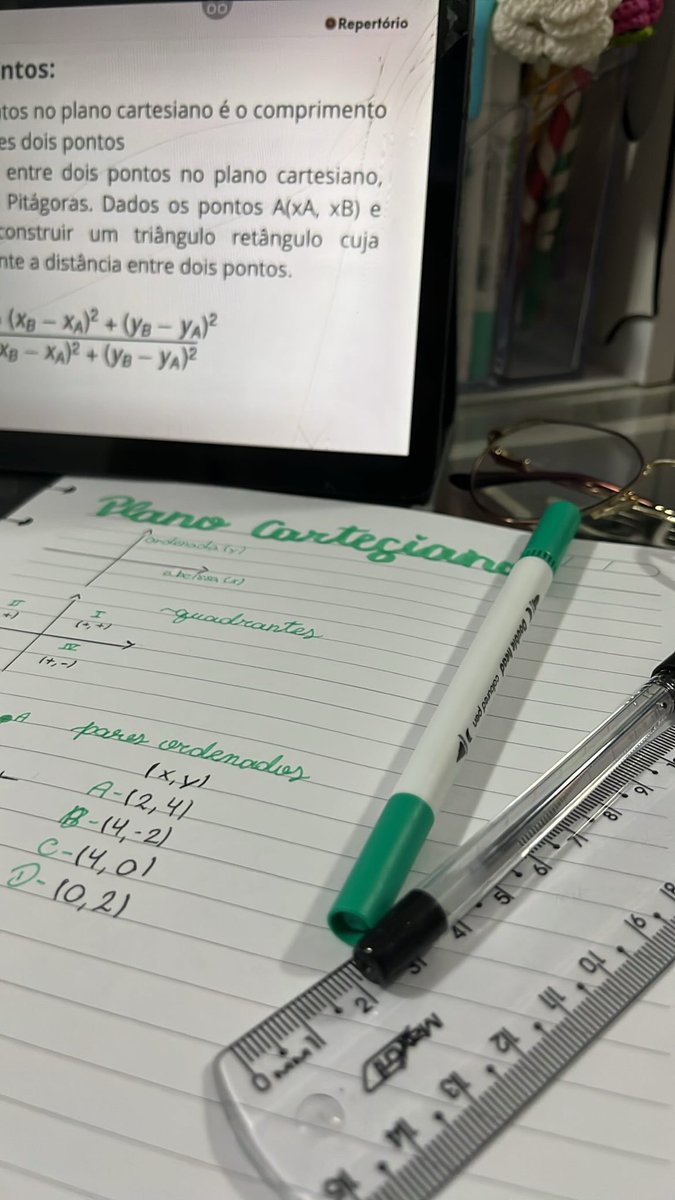 Repertório
ntos:
tos no plano cartesiano é o comprimento
es dois pontos
entre dois pontos no plano cartesiano,
Pitágoras. Dados os pontos A(xA, xB) e
construir um triângulo retângulo cuja
nte a distância entre dois pontos.
(x_B – x_A)² + (y_B – y_A)²
x_B – x_A)² + (y_B – y_A)²
Plano Cartesiano
ordenada (y)
abscissa (x)
~quadrantes
II I
+) (+,+)
IV
(+,-)
A
pares ordenados
(x,y)
A-(2,4)
B-(4,-2)
C-(4,0)
D-(0,2)
Double Head coloured pen
0 1 2 3 4 5 6 7 8 9
16 14 13 12 11 10 9 8